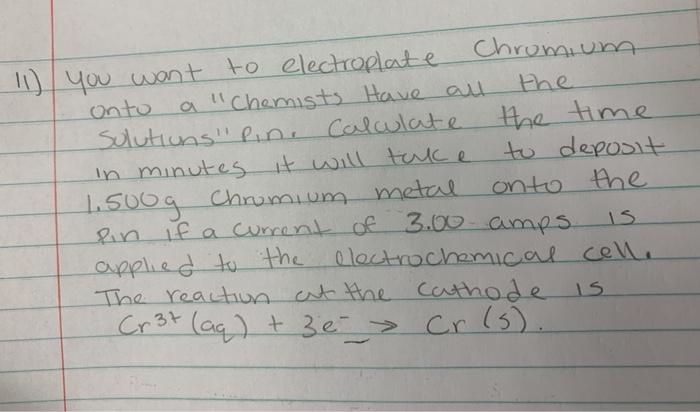 11) you want to electroplate Chromium
onto a "Chemists Have all the
Solutions" Pin. Calculate the time
in minutes it will take to deposit
1.500g Chromium metal onto the
Pin if a current of 3.00 amps is
applied to the electrochemical cell.
The reaction at the cathode is
Cr³⁺ (aq) + 3e⁻ → Cr (s).